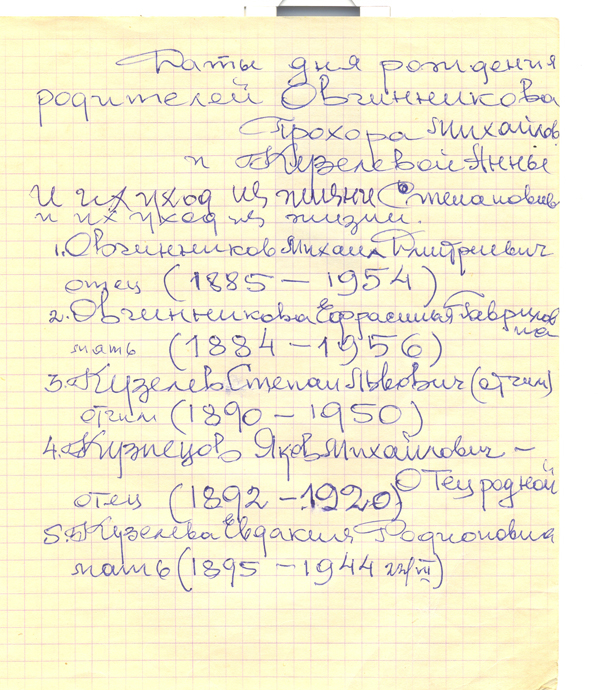 Даты дня рождения
родителей Овчинникова
Прохора Михайлов
и Кузелевой Анны
И их уход из жизни Степановны
и их уход из жизни.
1. Овчинников Михаил Дмитриевич
отец (1885 – 1954)
2. Овчинникова Ефрасинья Гавриловна
мать (1884 – 1956)
3. Кузелев Степан Львович (отчим)
отчим (1890 – 1950)
4. Кузнецов Яков Михайлович –
отец (1892 – 1920) Отец родной
5. Кузелева Евдакия Родионовна
мать (1895 – 1944 VII)